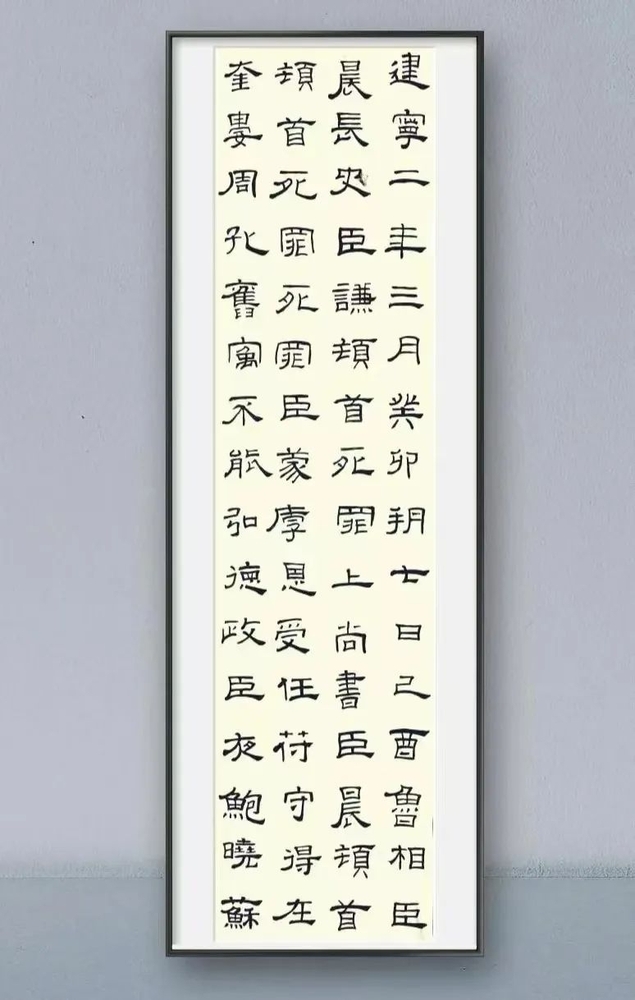 建寧二年三月癸卯朔七日己酉魯相臣
晨長史臣謙頓首死罪上尚書臣晨頓首
頓首死罪死罪臣蒙厚恩受任符守得在
奎婁周孔舊寓不能弘德政臣夜鮑曉蘇